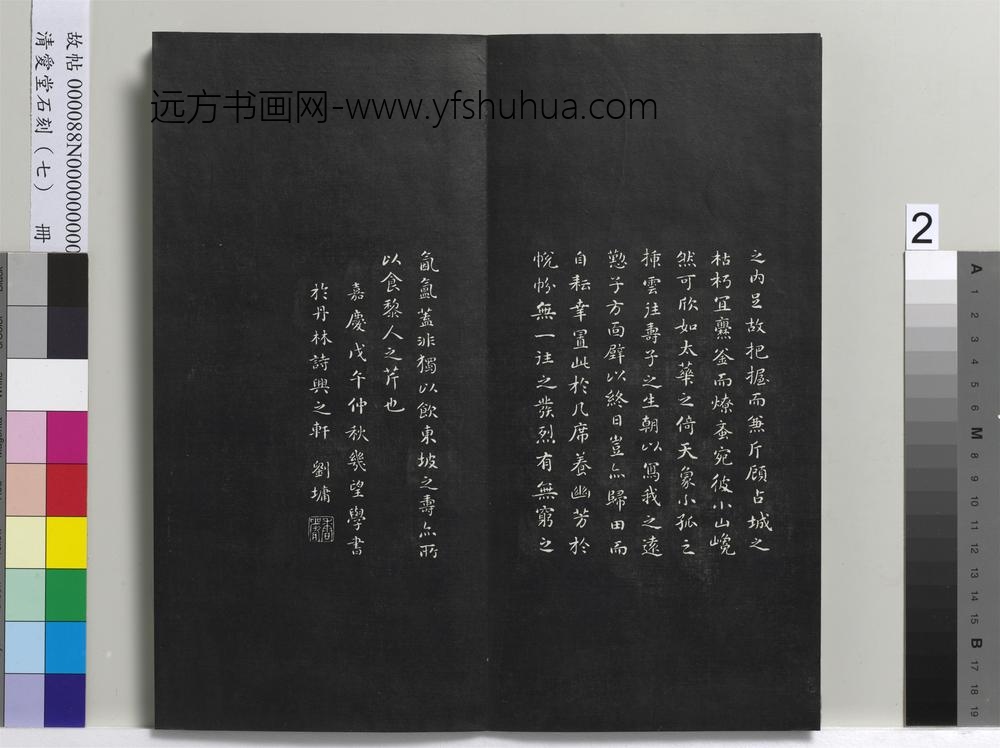 之內足故把握而兼斤顧占城之
枯朽宜爨釜而燎蚉宛彼小山巉
然可欣如太華之倚天象小孤之
揷雲往壽子之生朝以寫我之遠
懃子方面壁以終日豈亦歸田而
自耘幸置此於几席養幽芳於
帨帉無一往之發烈有無窮之
氤氳蓋非獨以飲東坡之壽亦所
以食黎人之芹也
嘉慶戊午仲秋幾望學書
於丹林詩興之軒 劉墉
远方书画网-www.yfshuhua.com
故帖 000088N000000000
清愛堂石刻(七) 冊
2
A 1 2 3 4 5 6 M 8 9 10 11 12 13 14 15 B 17 18 19